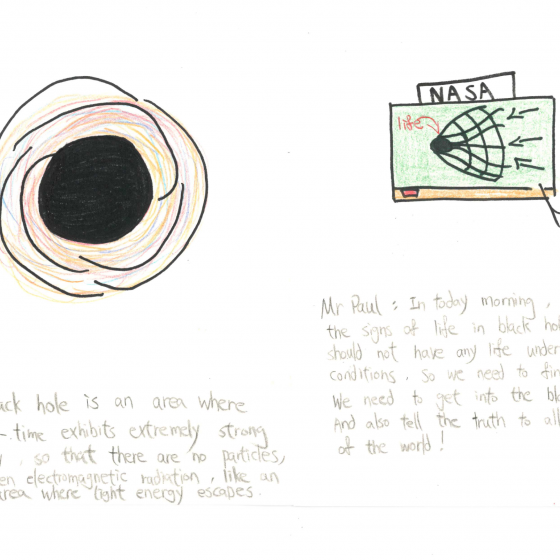 NASA
life
ack hole is an area where
-time exhibits extremely strong
, so that there are no particles,
en electromagnetic radiation, like an
area where light energy escapes.
Mr Paul : In today morning,
the signs of life in black ho
should not have any life under
conditions. So we need to fin
We need to get into the bl
And also tell the truth to all
of the world!